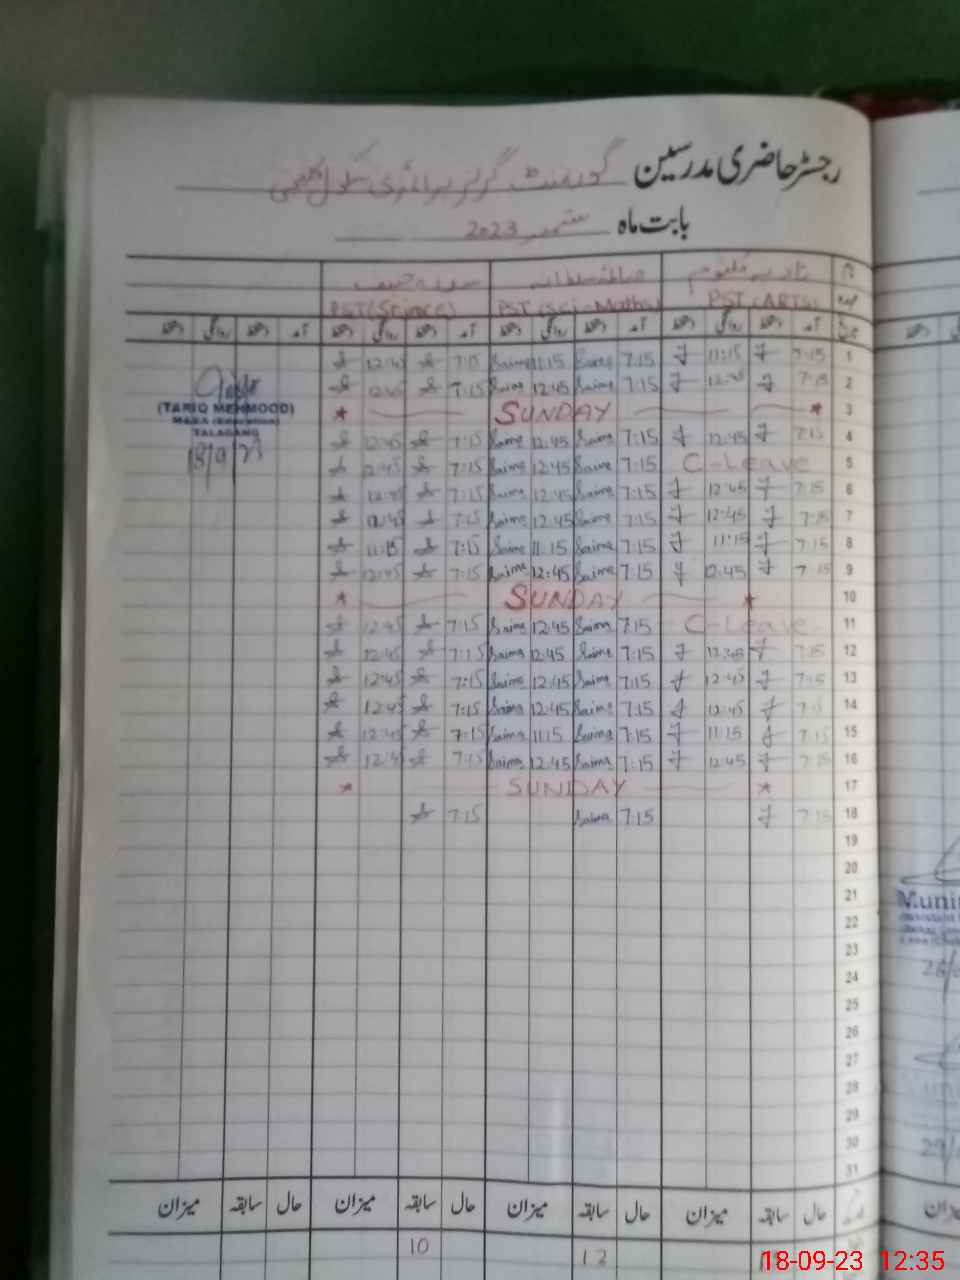 رجسٹر حاضری مدرسین گورنمنٹ گرلز پرائمری سکول
بابت ماہ ستمبر 2023
PST (ARTS) PST (Sci-Maths) PST (Science)
آمد دستخط روانگی دستخط آمد دستخط روانگی دستخط آمد دستخط روانگی دستخط آمد دستخط روانگی دستخط
1 7:15 11:15 7:15 Saima 11:15 Saima 7:15 12:45
2 7:15 12:45 7:15 Saima 12:45 Saima 7:15 12:45
3 * SUNDAY *
4 7:15 12:45 7:15 Saima 12:45 Saima 7:15 12:45
5 C-Leave 7:15 Saima 12:45 Saima 7:15 12:45
6 7:15 12:45 7:15 Saima 12:45 Saima 7:15 12:45
7 7:15 12:45 7:15 Saima 12:45 Saima 7:15 12:45
8 7:15 11:15 7:15 Saima 11:15 Saima 7:15 11:15
9 7:15 12:45 7:15 Saima 12:45 Saima 7:15 12:45
10 * SUNDAY *
11 C-Leave 7:15 Saima 12:45 Saima 7:15 12:45
12 7:15 12:45 7:15 Saima 12:45 Saima 7:15 12:45
13 7:15 12:45 7:15 Saima 12:45 Saima 7:15 12:45
14 7:15 12:45 7:15 Saima 12:45 Saima 7:15 12:45
15 7:15 11:15 7:15 Saima 11:15 Saima 7:15 12:45
16 7:15 12:45 7:15 Saima 12:45 Saima 7:15 12:45
17 * SUNDAY *
18 7:15 7:15 Saima 7:15
19
20
21
22
23
24
25
26
27
28
29
30
31
حال سابقہ میزان حال سابقہ میزان حال سابقہ میزان حال سابقہ میزان
12 10
(TARIQ MEHMOOD)
TALAGANG
18/9/23
18-09-23 12:35